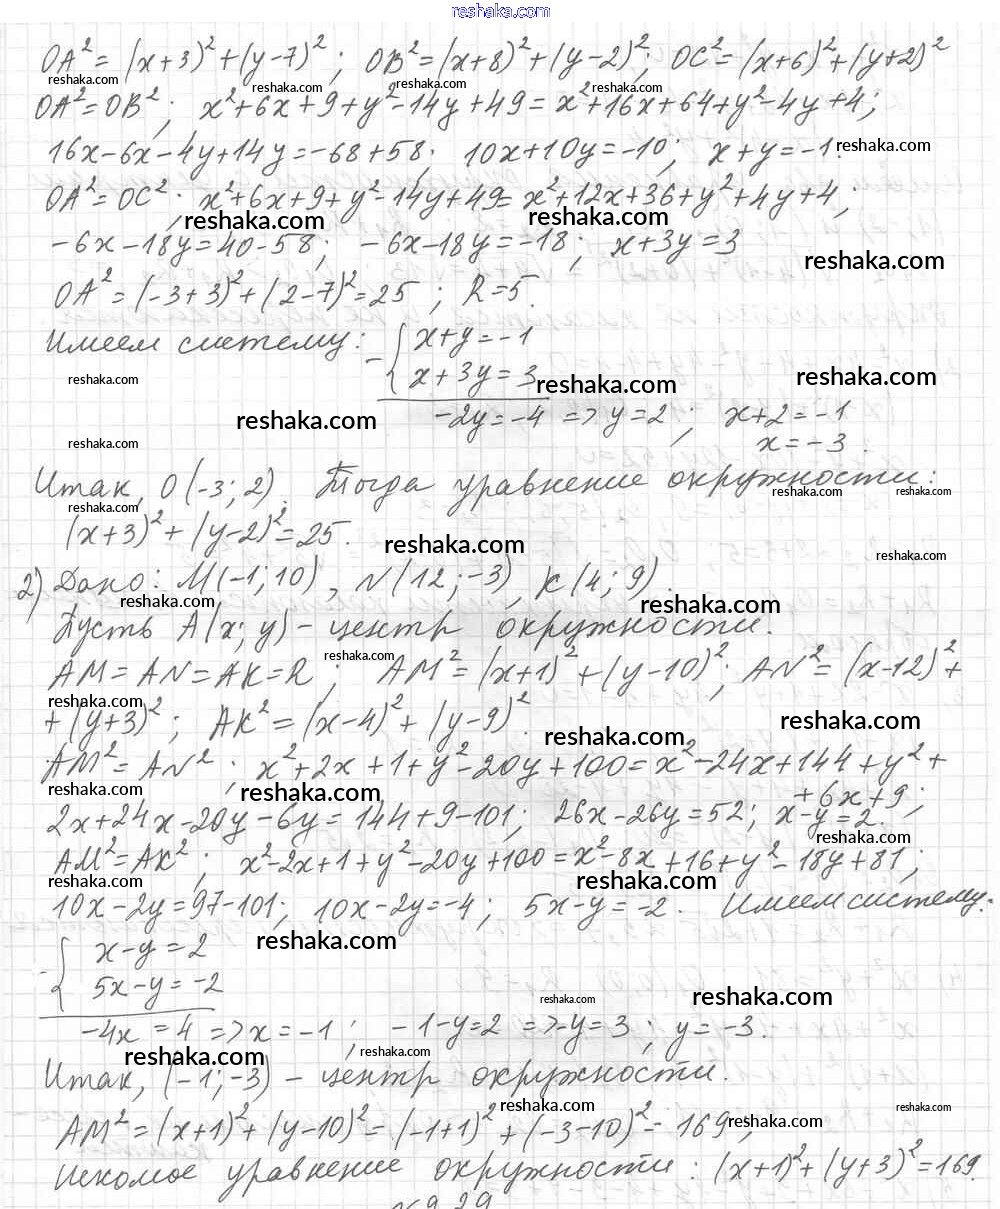 reshaka.com
OA²= (x+3)²+(y-7)²; OB²=(x+8)²+(y-2)²; OC²=(x+6)²+(y+2)²
OA²=OB²; x²+6x+9+y²-14y+49=x²+16x+64+y²-4y+4;
16x-6x-4y+14y=-68+58; 10x+10y=-10; x+y=-1.
OA²=OC²; x²+6x+9+y²-14y+49=x²+12x+36+y²+4y+4;
-6x-18y=40-58; -6x-18y=-18; x+3y=3
OA²=(-3+3)²+(2-7)²=25; R=5.
Имеем систему: - { x+y=-1
x+3y=3
-2y=-4 => y=2; x+2=-1
x=-3.
Итак, O(-3; 2). Тогда уравнение окружности:
(x+3)²+(y-2)²=25.
2) Дано: M(-1; 10), N(12; -3), K(4; 9).
Пусть A(x; y) - центр окружности.
AM=AN=AK=R; AM²=(x+1)²+(y-10)²; AN²=(x-12)²+
+(y+3)²; AK²=(x-4)²+(y-9)².
AM²=AN²; x²+2x+1+y²-20y+100=x²-24x+144+y²+
+6x+9;
2x+24x-20y-6y=144+9-101; 26x-26y=52; x-y=2.
AM²=AK²; x²-2x+1+y²-20y+100=x²-8x+16+y²-18y+81;
10x-2y=97-101; 10x-2y=-4; 5x-y=-2. Имеем систему:
- { x-y=2
5x-y=-2
-4x=4 => x=-1; -1-y=2 => -y=3; y=-3.
Итак, (-1; -3) - центр окружности.
AM²=(x+1)²+(y-10)²=(-1+1)²+(-3-10)²=169;
Искомое уравнение окружности: (x+1)²+(y+3)²=169.